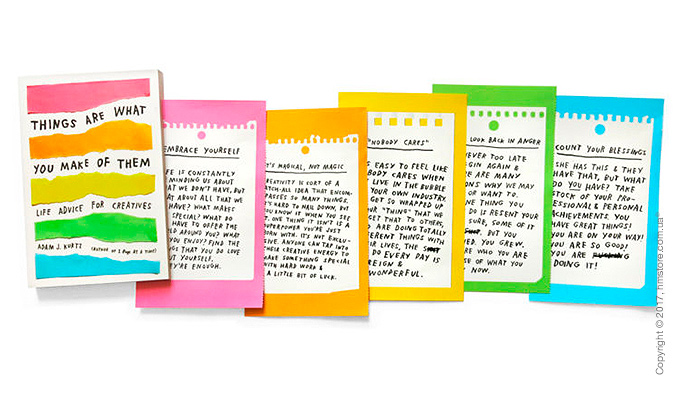 THINGS ARE WHAT
YOU MAKE OF THEM
LIFE ADVICE FOR CREATIVES
ADAM J. KURTZ (AUTHOR OF 1 PAGE AT A TIME)
EMBRACE YOURSELF
FE IS CONSTANTLY
MINDING US ABOUT
WHAT WE DON'T HAVE, BUT
AT ABOUT ALL THAT WE
HAVE? WHAT MAKES
SPECIAL? WHAT DO
HAVE TO OFFER THE
LD AROUND YOU? WHAT
YOU ENJOY? FIND THE
NGS THAT YOU DO LOVE
OUT YOURSELF,
'RE ENOUGH.
T'S MAGICAL, NOT MAGIC
REATIVITY IS SORT OF A
ATCH-ALL IDEA THAT ENCOM-
PASSES SO MANY THINGS.
T'S HARD TO NAIL DOWN, BUT
YOU KNOW IT WHEN YOU SEE
ONE THING IT ISN'T IS A
SUPERPOWER YOU'RE JUST
ORN WITH. IT'S NOT EXCLU-
IVE. ANYONE CAN TAP INTO
HEIR CREATIVE ENERGY TO
AKE SOMETHING SPECIAL
WITH HARD WORK &
A LITTLE BIT OF LUCK.
"NOBODY CARES"
S EASY TO FEEL LIKE
BODY CARES WHEN
LIVE IN THE BUBBLE
YOUR OWN INDUSTRY.
GET SO WRAPPED UP
YOUR "THING" THAT WE
GET THAT TO OTHERS,
ARE DOING TOTALLY
FERENT THINGS WITH
IR LIVES, THE
DO EVERY DAY IS
REIGN &
WONDERFUL.
LOOK BACK IN ANGER
EVER TOO LATE
GIN AGAIN &
E ARE MANY
ONS WHY WE MAY
OR WANT TO.
NE THING YOU
D DO IS RESENT YOUR
SURE, SOME OF IT
BUT YOU
NED. YOU GREW.
RE WHO YOU ARE
SE OF WHAT YOU
NOW.
COUNT YOUR BLESSINGS
SHE HAS THIS & THEY
HAVE THAT, BUT WHAT
DO YOU HAVE? TAKE
STOCK OF YOUR PRO-
FESSIONAL & PERSONAL
ACHIEVEMENTS. YOU
HAVE GREAT THINGS!
YOU ARE ON YOUR WAY!
YOU ARE SO GOOD!
YOU ARE
DOING IT!
Copyright © 2017, hmstore.com.ua